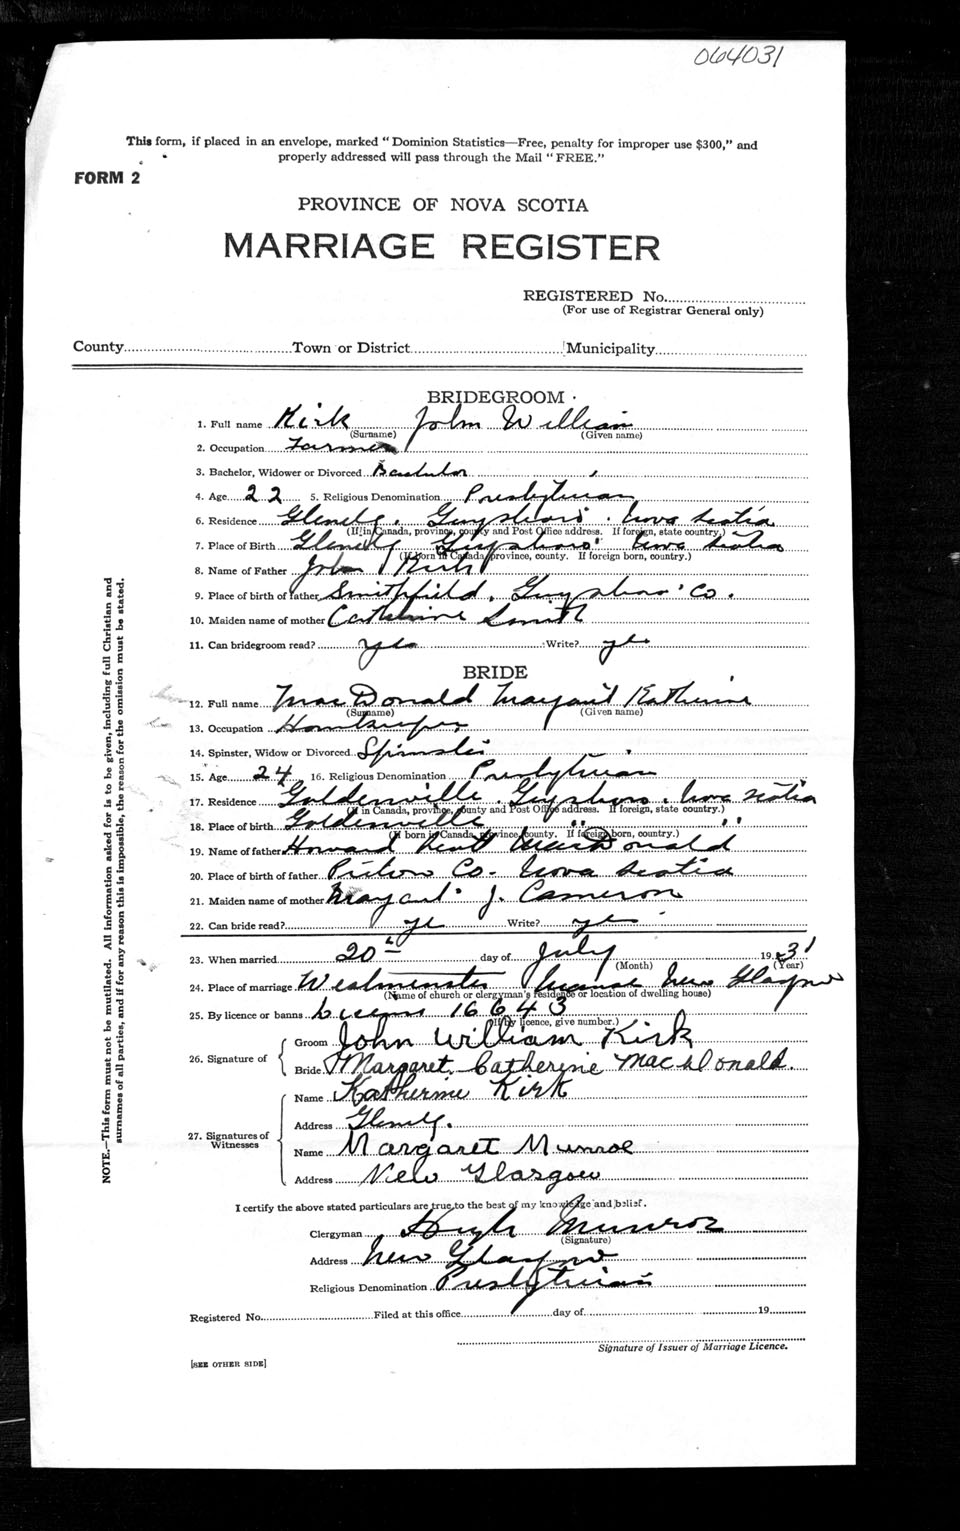 064031
This form, if placed in an envelope, marked "Dominion Statistics—Free, penalty for improper use $300," and
properly addressed will pass through the Mail "FREE."
FORM 2
PROVINCE OF NOVA SCOTIA
MARRIAGE REGISTER
REGISTERED No.
(For use of Registrar General only)
County Town or District Municipality
BRIDEGROOM
1. Full name Kirk John William
(Surname) (Given name)
2. Occupation Farmer
3. Bachelor, Widower or Divorced Bachelor
4. Age 22 5. Religious Denomination Presbyterian
6. Residence Glenelg, Guysboro, Nova Scotia
(If in Canada, province, county and Post Office address. If foreign, state country.)
7. Place of Birth Glenelg Guysboro Nova Scotia
(If born in Canada, province, county. If foreign born, country.)
8. Name of Father John Kirk
9. Place of birth of father Smithfield, Guysboro Co.
10. Maiden name of mother Catherine Smith
11. Can bridegroom read? yes Write? yes
BRIDE
12. Full name MacDonald Margaret Katherine
(Surname) (Given name)
13. Occupation Housekeeper
14. Spinster, Widow or Divorced Spinster
15. Age 24 16. Religious Denomination Presbyterian
17. Residence Goldenville, Guysboro, Nova Scotia
(If in Canada, province, county and Post Office address. If foreign, state country.)
18. Place of birth Goldenville " "
(If born in Canada, province, county. If foreign born, country.)
19. Name of father Howard MacDonald
20. Place of birth of father Pictou Co. Nova Scotia
21. Maiden name of mother Margaret J. Cameron
22. Can bride read? yes Write? yes
23. When married 20th day of July 1931
(Month) (Year)
24. Place of marriage Westminster Manse New Glasgow
(Name of church or clergyman's residence or location of dwelling house)
25. By licence or banns License 16643
(If by licence, give number.)
26. Signature of
Groom John William Kirk
Bride Margaret Catherine MacDonald.
27. Signatures of Witnesses
Name Katherine Kirk
Address Glenelg.
Name Margaret Munroe
Address New Glasgow
I certify the above stated particulars are true to the best of my knowledge and belief.
Clergyman Hugh Munroe
(Signature)
Address New Glasgow
Religious Denomination Presbyterian
Registered No. Filed at this office day of 19
Signature of Issuer of Marriage Licence.
[SEE OTHER SIDE]
NOTE.—This form must not be mutilated. All information asked for is to be given, including full Christian and
surnames of all parties, and if for any reason this is impossible, the reason for the omission must be stated.